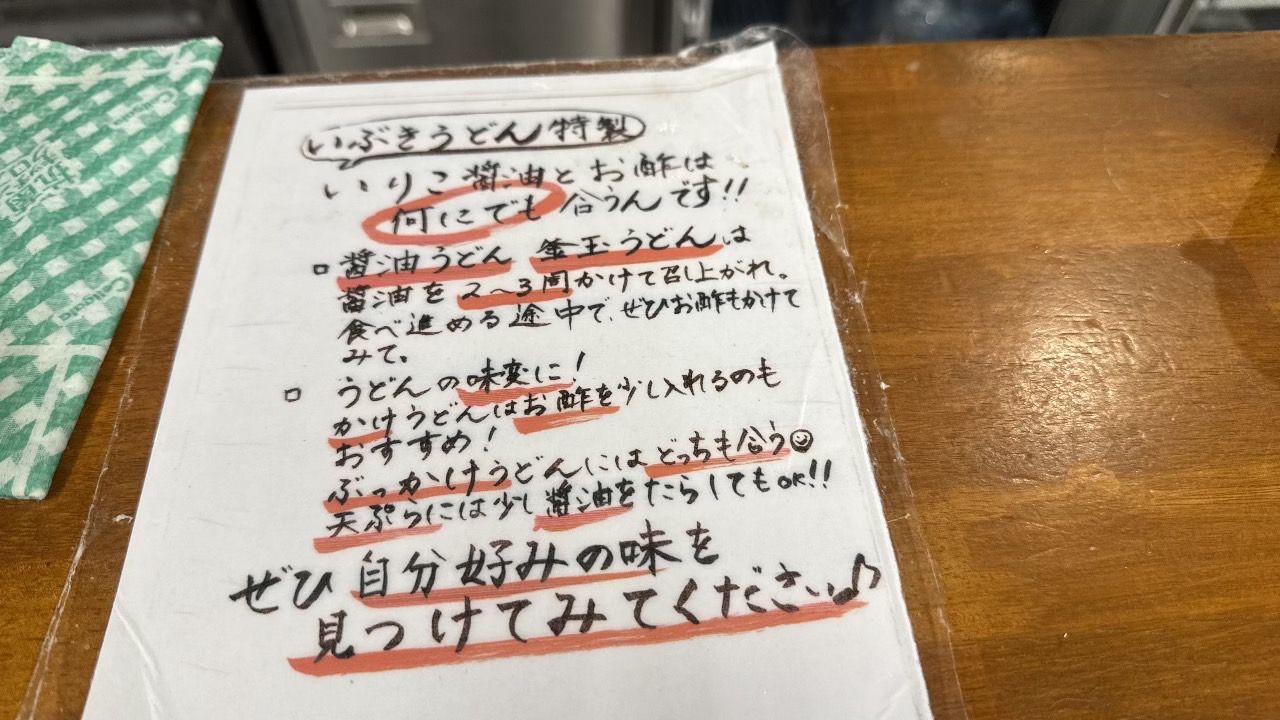 いぶきうどん特製
いりこ醤油とお酢は
何にでも合うんです!!
醤油うどん 釜玉うどんは
醤油を2〜3周かけて召し上がれ。
食べ進める途中で、ぜひお酢もかけて
みて。
うどんの味変に!
かけうどんはお酢を少し入れるのも
おすすめ!
ぶっかけうどんにはどっちも合う☺
天ぷらには少し醤油をたらしてもOK!!
ぜひ自分好みの味を
見つけてみてください♪